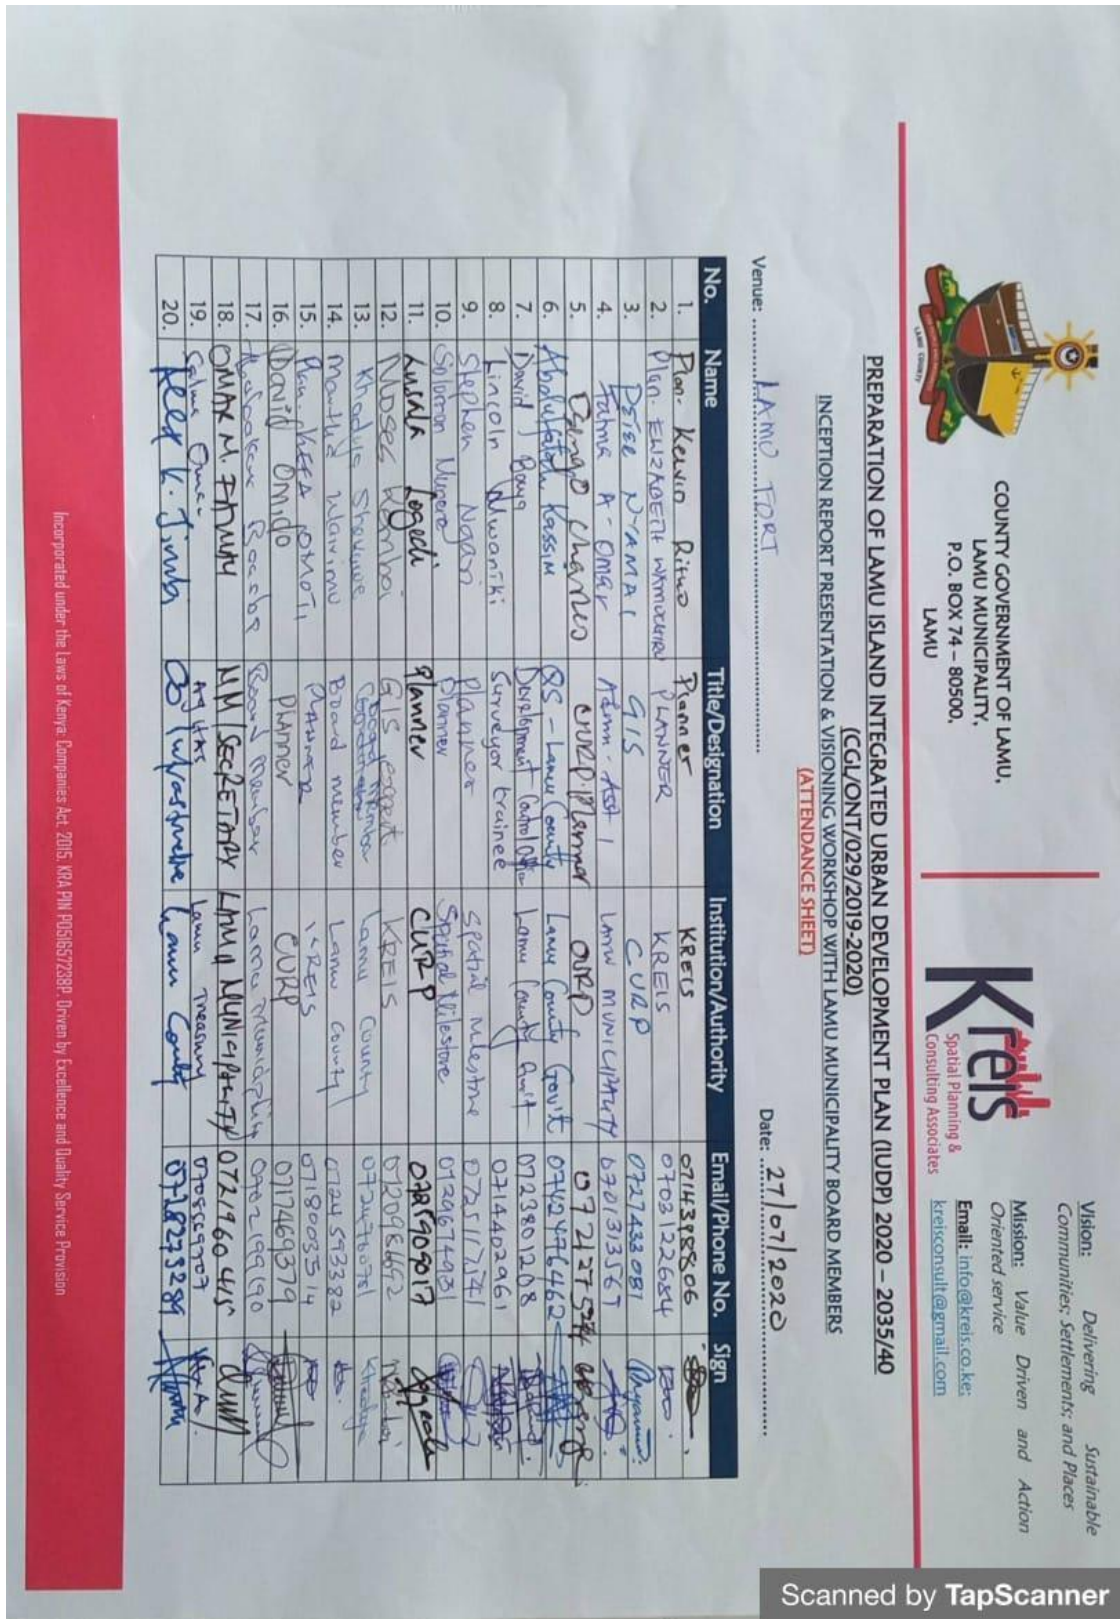 COUNTY GOVERNMENT OF LAMU,
LAMU MUNICIPALITY,
P.O. BOX 74 – 80500,
LAMU
LAMU COUNTY
Kreis
Spatial Planning &
Consulting Associates
Vision: Delivering Sustainable
Communities; Settlements; and Places
Mission: Value Driven and Action
Oriented service
Email: info@kreis.co.ke:
kreisconsult@gmail.com
PREPARATION OF LAMU ISLAND INTEGRATED URBAN DEVELOPMENT PLAN (IUDP) 2020 – 2035/40
(CGL/ONT/029/2019-2020)
INCEPTION REPORT PRESENTATION & VISIONING WORKSHOP WITH LAMU MUNICIPALITY BOARD MEMBERS
(ATTENDANCE SHEET)
Venue: LAMU FORT Date: 27/07/2020
No. Name Title/Designation Institution/Authority Email/Phone No. Sign
1. Plan. Kelvin Planner KREIS 0714398806
2. Plan. ELIZABETH PLANNER KREIS 0703122684
3. GIS CURP 0727433081
4. Fatma A. Omar Admn. Asst 1 LAMU MUNICIPALITY 0701313567
5. CURP. Planner CURP
6. Abdulfatah Kassim QS - Lamu County Lamu County Gov't 0742476462
7. David Baya Development Control Lamu County Govt 0723801208
8. Lincoln Mwaniki Surveyor trainee 0714402961
9. Stephen Ngari Planner Spatial Milestone 0725117541
10. Solomon Planner Spatial Milestone 0729674931
11. Luvala Logedi Planner CURP
12. Moses GIS expert KREIS 0720986692
13. Khadija Board Member Lamu County 0724776078
14. Wairimu Board member Lamu County 0724593382
15. Plan. KEFA OMOTI PLANNER KREIS 0718003514
16. David Omido Planner CURP 0717469379
17. Board member Lamu Municipality 0702199190
18. OMAR M. MM/SECRETARY LAMU MUNICIPALITY 0721960415
19. Salma Omar Lamu Treasury 0708569707
20. K. Jimba Infrastructure Lamu County 0728273289
Incorporated under the Laws of Kenya: Companies Act. 2015. KRA PIN P051657238P. Driven by Excellence and Quality Service Provision
Scanned by TapScanner